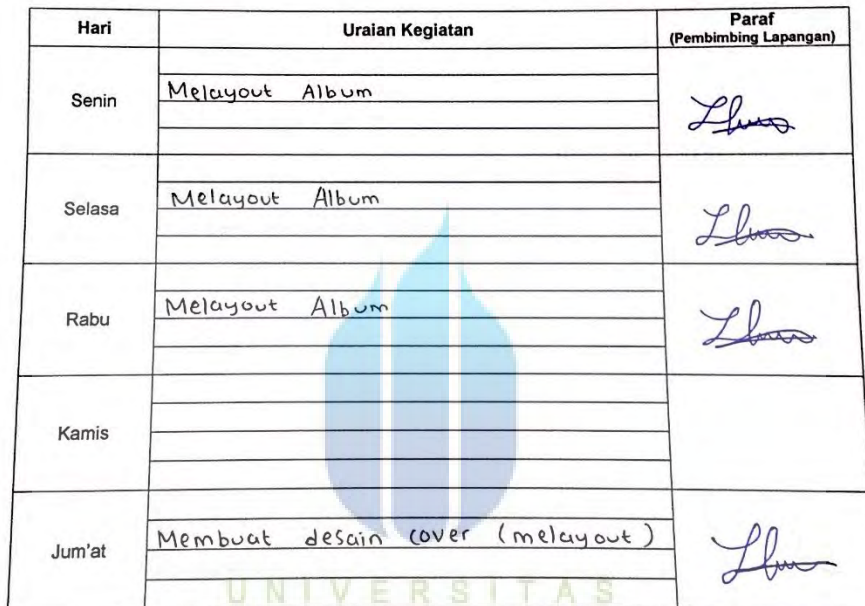 Hari Uraian Kegiatan Paraf
(Pembimbing Lapangan)
Senin Melayout Album
Selasa Melayout Album
Rabu Melayout Album
Kamis
Jum'at Membuat desain cover (melayout)
UNIVERSITAS